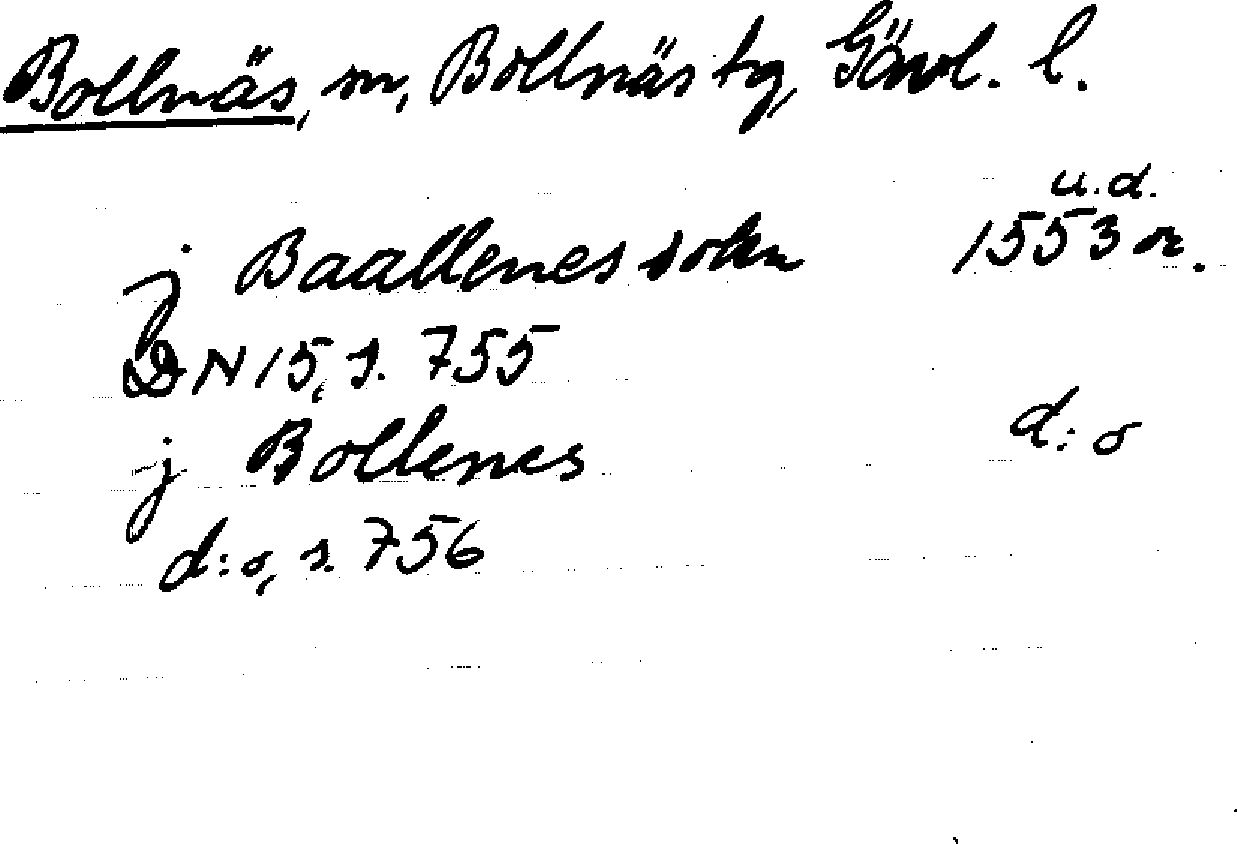 Bollnäs, sn, Bollnäs tg, Gävl. l.
u.d.
j Baallenes sokn 1553 or.
DN 15, s. 755
j Bollenes d:o
d:o, s. 756